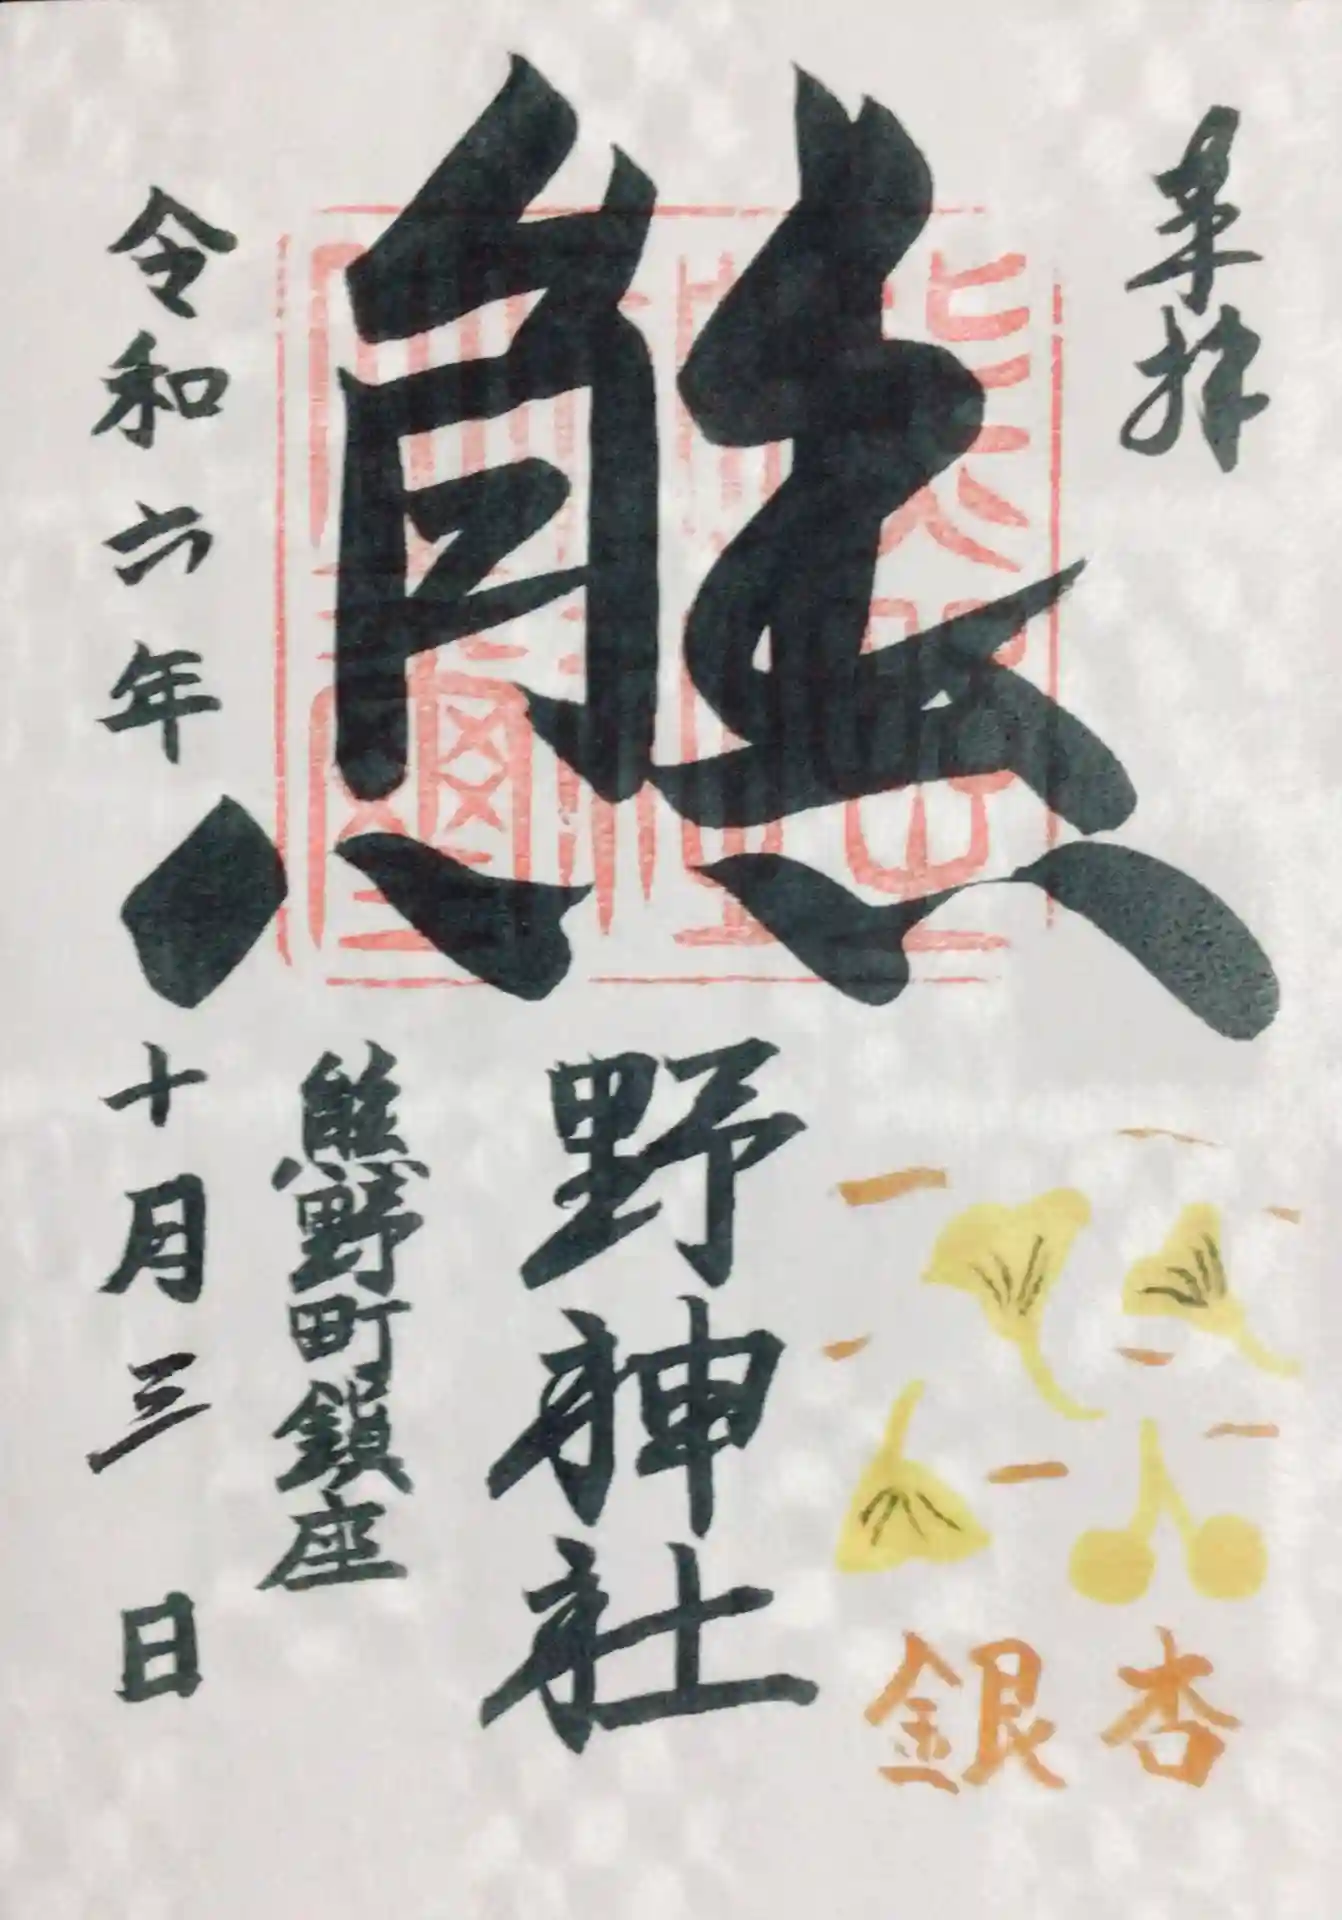 来拝
熊野神社
銀杏
熊野町鎮座
令和六年十月三日